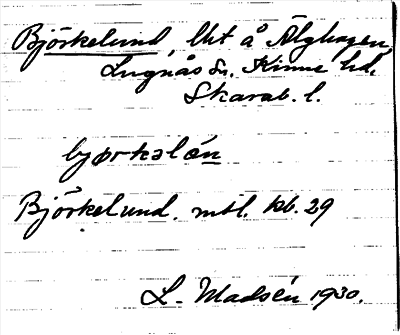 Björkelund, lht å Älghagen,
Lugnås sn, Kinne hd,
Skarab. l.
bjørkəlón
Björkelund. mtl. kb. 29
L. Madsén 1930.